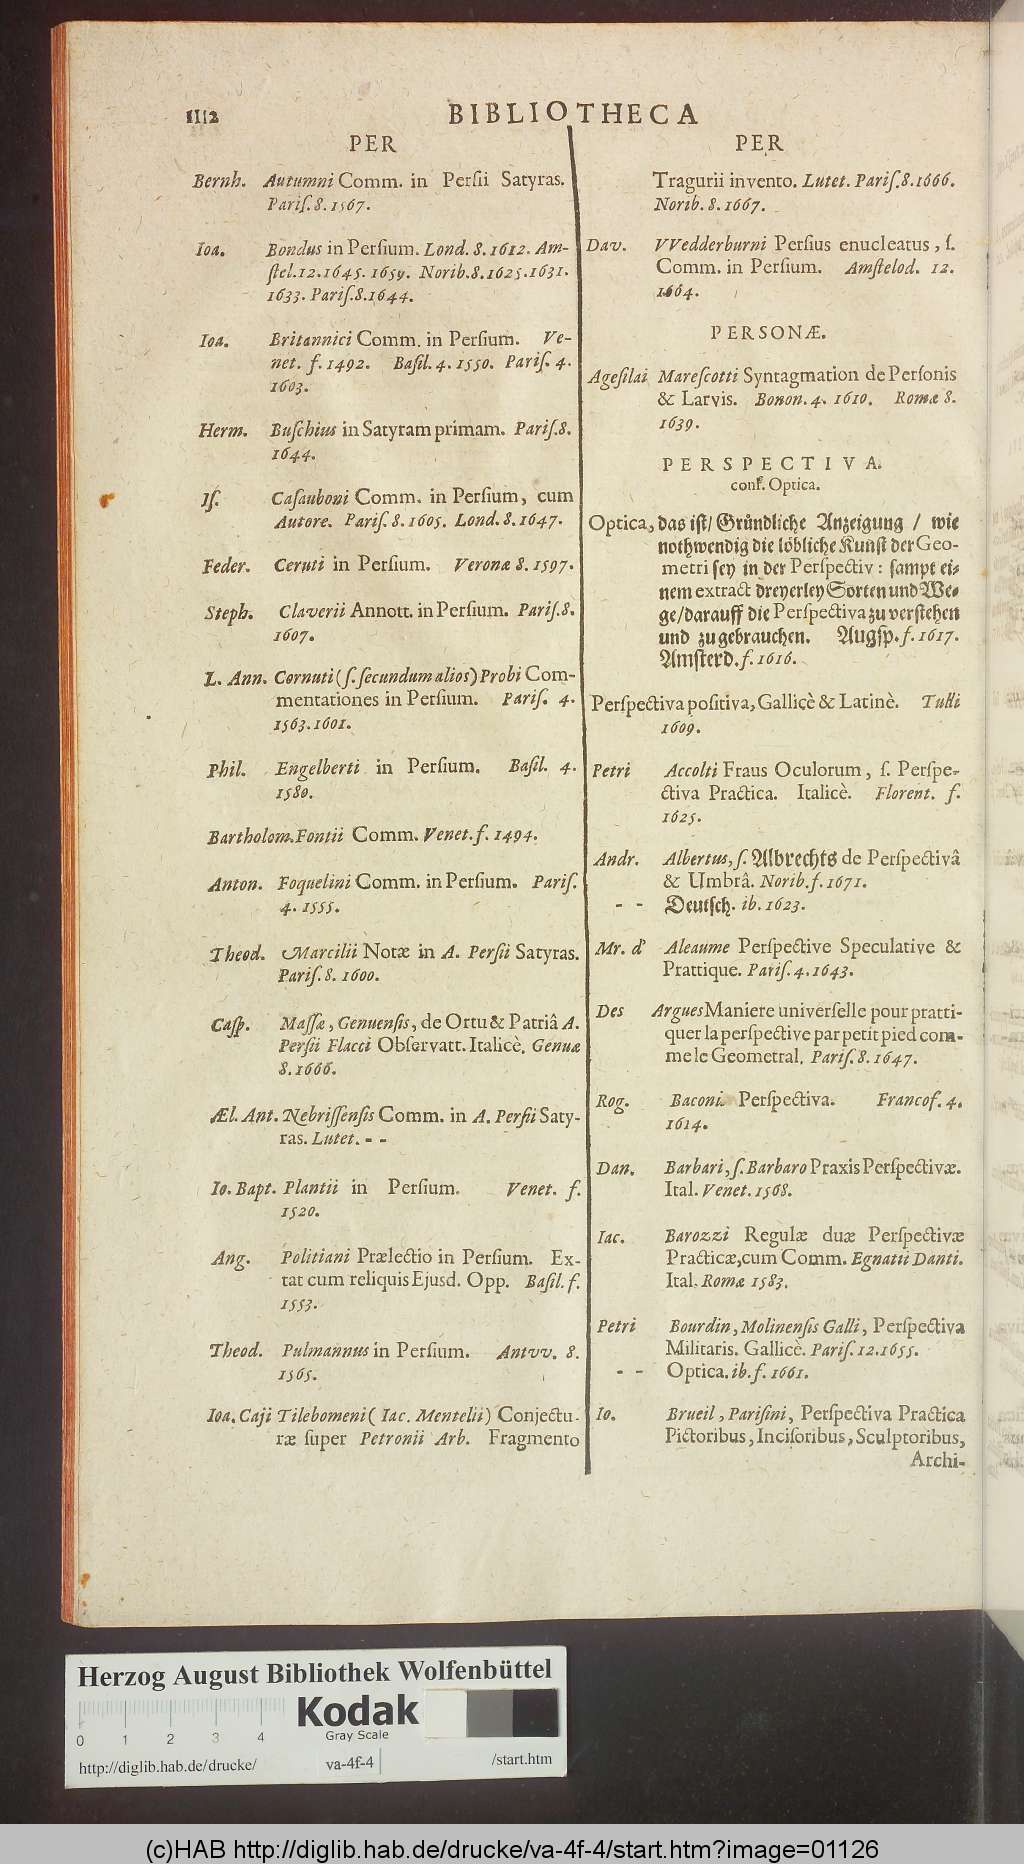 1112 BIBLIOTHECA
PER
Bernh. Autumni Comm. in Persii Satyras.
Pariſ. 8. 1567.
Ioa. Bondus in Perſium. Lond. 8. 1612. Am-
ſtel. 12. 1645. 1659. Norib. 8. 1625. 1631.
1633. Pariſ. 8. 1644.
Ioa. Britannici Comm. in Perſium. Ve-
net. f. 1492. Baſil. 4. 1550. Pariſ. 4.
1603.
Herm. Buſchius in Satyram primam. Pariſ. 8.
1644.
Iſ. Caſauboni Comm. in Perſium, cum
Autore. Pariſ. 8. 1605. Lond. 8. 1647.
Feder. Ceruti in Perſium. Veronæ 8. 1597.
Steph. Claverii Annott. in Perſium. Pariſ. 8.
1607.
L. Ann. Cornuti (ſ. ſecundum alios) Probi Com-
mentationes in Perſium. Pariſ. 4.
1563. 1601.
Phil. Engelberti in Perſium. Baſil. 4.
1580.
Bartholom. Fontii Comm. Venet. f. 1494.
Anton. Foquelini Comm. in Perſium. Pariſ.
4. 1555.
Theod. Marcilii Notæ in A. Perſii Satyras.
Pariſ. 8. 1600.
Caſp. Maſſæ, Genuenſis, de Ortu & Patriâ A.
Perſii Flacci Obſervatt. Italicè. Genuæ
8. 1666.
Æl. Ant. Nebriſſenſis Comm. in A. Perſii Saty-
ras. Lutet. - -
Io. Bapt. Plantii in Perſium. Venet. f.
1520.
Ang. Politiani Prælectio in Perſium. Ex-
tat cum reliquis Ejusd. Opp. Baſil. f.
1553.
Theod. Pulmannus in Perſium. Antvv. 8.
1565.
Ioa. Caji Tilebomeni (Iac. Mentelii) Conjectu-
ræ ſuper Petronii Arb. Fragmento
PER
Tragurii invento. Lutet. Pariſ. 8. 1666.
Norib. 8. 1667.
Dav. VVedderburni Perſius enucleatus, ſ.
Comm. in Perſium. Amſtelod. 12.
1664.
PERSONÆ.
Ageſilai Mareſcotti Syntagmation de Perſonis
& Larvis. Bonon. 4. 1610. Romæ 8.
1639.
PERSPECTIVA.
conf. Optica.
Optica, das iſt/ Gründliche Anzeigung / wie
nothwendig die löbliche Kunſt der Geo-
metri ſey in der Perſpectiv: ſampt ei-
nem extract dreyerley Sorten und We-
ge/ darauff die Perſpectiva zu verſtehen
und zu gebrauchen. Augſp. f. 1617.
Amſterd. f. 1616.
Perſpectiva poſitiva, Gallicè & Latinè. Tulli
1609.
Petri Accolti Fraus Oculorum, ſ. Perſpe-
ctiva Practica. Italicè. Florent. f.
1625.
Andr. Albertus, ſ. Albrechts de Perſpectivâ
& Umbrâ. Norib. f. 1671.
- - Deutſch. ib. 1623.
Mr. d' Aleaume Perſpective Speculative &
Prattique. Pariſ. 4. 1643.
Des Argues Maniere univerſelle pour pratti-
quer la perſpective par petit pied com-
me le Geometral. Pariſ. 8. 1647.
Rog. Baconi Perſpectiva. Francof. 4.
1614.
Dan. Barbari, ſ. Barbaro Praxis Perſpectivæ.
Ital. Venet. 1568.
Iac. Barozzi Regulæ duæ Perſpectivæ
Practicæ, cum Comm. Egnatii Danti.
Ital. Romæ 1583.
Petri Bourdin, Molinenſis Galli, Perſpectiva
Militaris. Gallicè. Pariſ. 12. 1655.
- - Optica. ib. f. 1661.
Io. Brueil, Pariſini, Perſpectiva Practica
Pictoribus, Inciſoribus, Sculptoribus,
Archi-
Herzog August Bibliothek Wolfenbüttel
Kodak
Gray Scale
0 1 2 3 4
http://diglib.hab.de/drucke/ va-4f-4 /start.htm
(c)HAB http://diglib.hab.de/drucke/va-4f-4/start.htm?image=01126